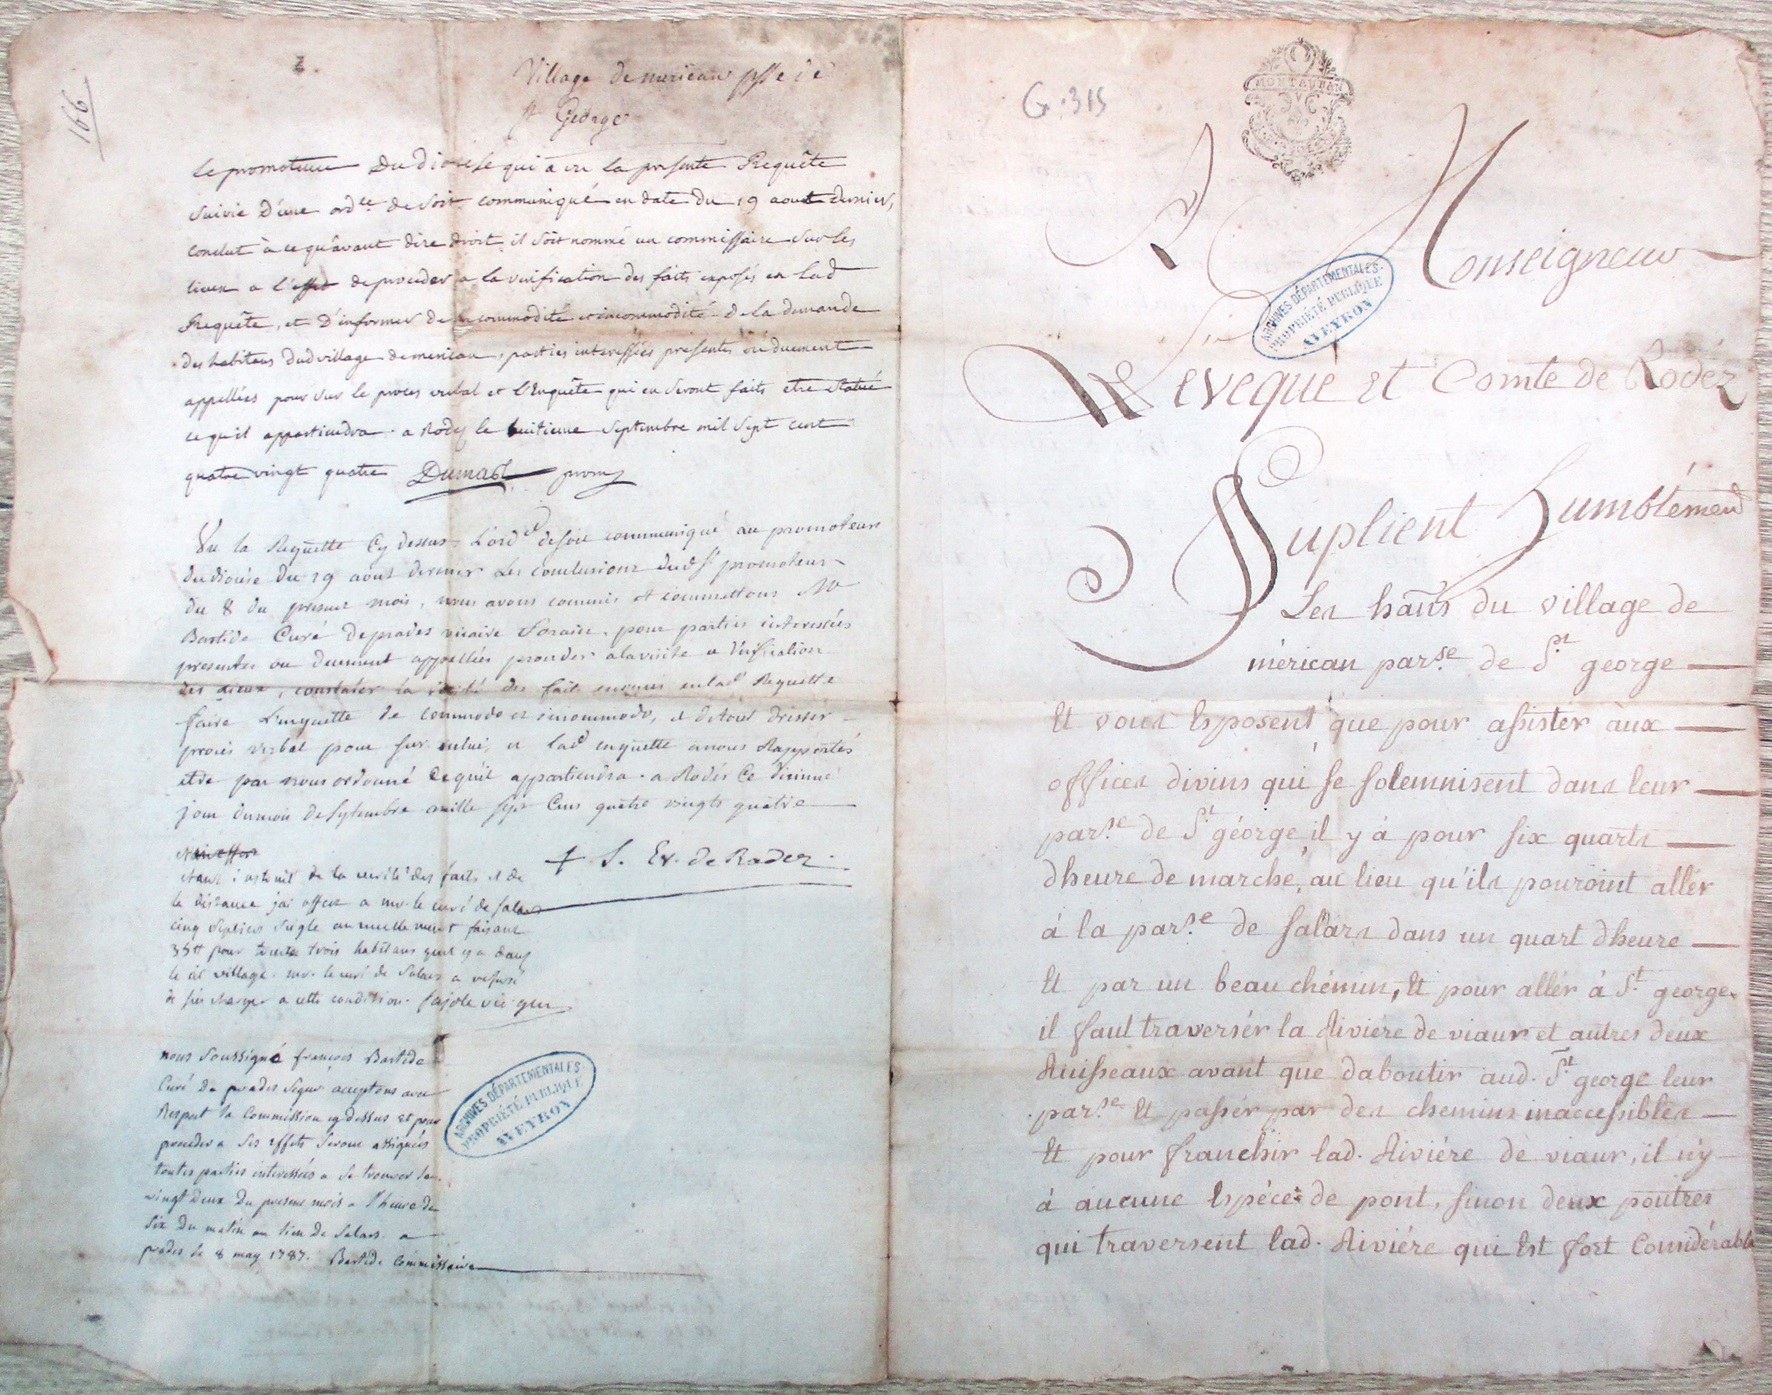 166
2.
Village de merican psse de
st George
Le promoteur Du Diocese qui a vu la presente Requête
suivie d'une ordce de soit communiqué en date du 19 aout dernier,
conclut à ce qu'avant dire droit, il soit nommé un commissaire sur les
lieux a l'effet de proceder a la verification des faits exposés en lad
Requête, et D'informer de la commodité et incommodité de la demande
des habitans dud village de merican, parties interessées presentes ou duement
appellées pour sur le proces verbal et l'Enquête qui en seront faits etre statué
ce qu'il appartiendra. a Rodez le huitieme septembre mil sept cent
quatre vingt quatre Dumast prom
Vu la Requette Cy dessus, L'ordce de soit communiqué au promoteur
du diocése du 19 aout dernier Les conclusions dud sr promoteur
du 8 du present mois, nous avons commis et commettons Mr
Bastide Curé de prades vicaire forain, pour parties interessées
presentes ou duement appellées proceder a la visite et Verification
des lieux, constater la verité des faits enoncés en lad Requette
faire L'enquette de commodo et incommodo, et du tout dresser
procés verbal pour sur icelui, et lad enquette a nous Rapportés
etre par nous ordonné ce qu'il appartiendra. a Rodés Ce dixieme
jour du mois de septembre mille sept Cens quatre vingts quatre
† S. Ev. de Rodez.
etant instruit de la verité des faits et de
la distance j'ai offert a mr. le curé de salars
cinq septiers segle au muelle meut faisant
35tt pour trente trois habitans quil y a dans
le dit village. mr. le curé de Salars a refusé
de s'en charger a cette condition. fajole vic gen
nous Soussigné françois Bastide
Curé de prades Segur acceptons avec
Respect la Commission cy dessus Et pour
proceder a Ses effets Seront assignées
toutes parties interessées a Se trouver le
vingt deux Du present mois a l'heure de
Six Du matin au lieu de Salars. a
prades le 8 may 1787. Bastide Commissaire
ARCHIVES DÉPARTEMENTALES
PROPRIÉTÉ PUBLIQUE
AVEYRON
G.315
MONTAUBAN
A Monseigneur
ARCHIVES DÉPARTEMENTALES
PROPRIÉTÉ PUBLIQUE
AVEYRON
L'eveque et Comte de Rodéz
Suplient humblément
Les hañs du village de
mérican parse de St george
Et vous Exposent que pour assister àux
offices divins qui se solemnisent dans leur
parse de St géorge, il y à pour six quarts
dheure de marché, au lieu qu'ils pouroint allér
á la parse de Salars dans un quart dheure
Et par un beau chémin, Et pour allér à St george
il faut traversér la Riviere de viaur et autres deux
Ruisseaux avant que daboutir aud. St george leur
parse Et passér par des chemins inaccessibles
Et pour franchir lad. Riviére de viaur, il n'y
á aucune Espéce de pont, sinon deux poutres
qui traversent lad. Riviére qui Est fort Considérable